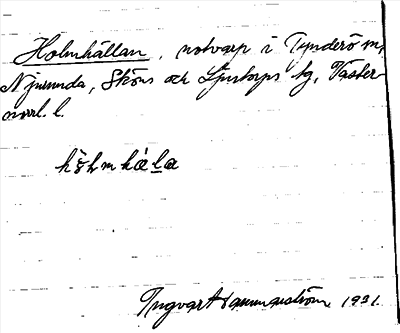 Holmhällan, notvarp i Tynderö m,
Njurunda, Sköns och Ljustorps tg, Väster-
norrl. l.
hò̀lmhä̀la
Ingvar Hammarström 1931.